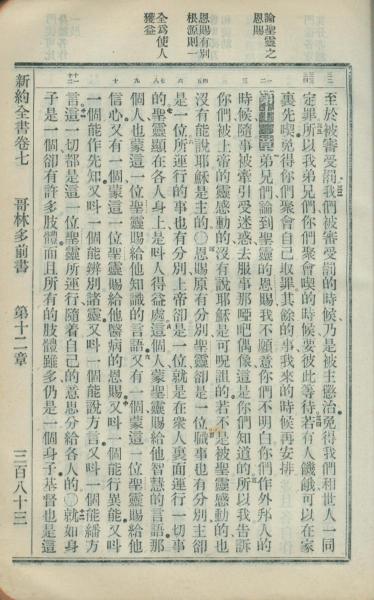 論聖靈之
恩賜
恩賜有別
根源則一
全爲使人
獲益
至於被審受罰我們被審受罰的時候乃是被主懲治免得我們和世人一同
定罪所以我弟兄們你們聚會喫的時候要彼此等待若有人饑餓可以在家
裏先喫免得你們聚會自己取罪其餘的事我來的時候再安排
第十二章弟兄們論到聖靈的恩賜我不願意你們不明白你們作外邦人的
時候隨事被牽引受迷惑去服事那啞吧偶像這是你們知道的所以我告訴
你們被上帝的靈感動的沒有說耶穌是可呪詛的若不是被聖靈感動的也
沒有能說耶穌是主的〇恩賜原有分別聖靈卻是一位職事也有分別主卻
是一位所運行的事也有分別上帝卻是一位就是在衆人裏面運行一切事
的聖靈顯在各人身上是呌人得益處這個人蒙聖靈賜給他智慧的言語那
個人也蒙這一位聖靈賜給他知識的言語又有一個蒙這一位聖靈賜給他
信心又有一個蒙這一位聖靈賜給他醫病的恩賜又呌一個能行異能又呌
一個能作先知又呌一個能辨別諸靈又呌一個能說方言又呌一個能繙方
言這一切都是這一位聖靈所運行隨着自己的意思分給各人的〇就如身
子是一個卻有許多肢體而且所有的肢體雖多仍是一個身子基督也是這
新約全書卷七 哥林多前書 第十二章 三百八十三